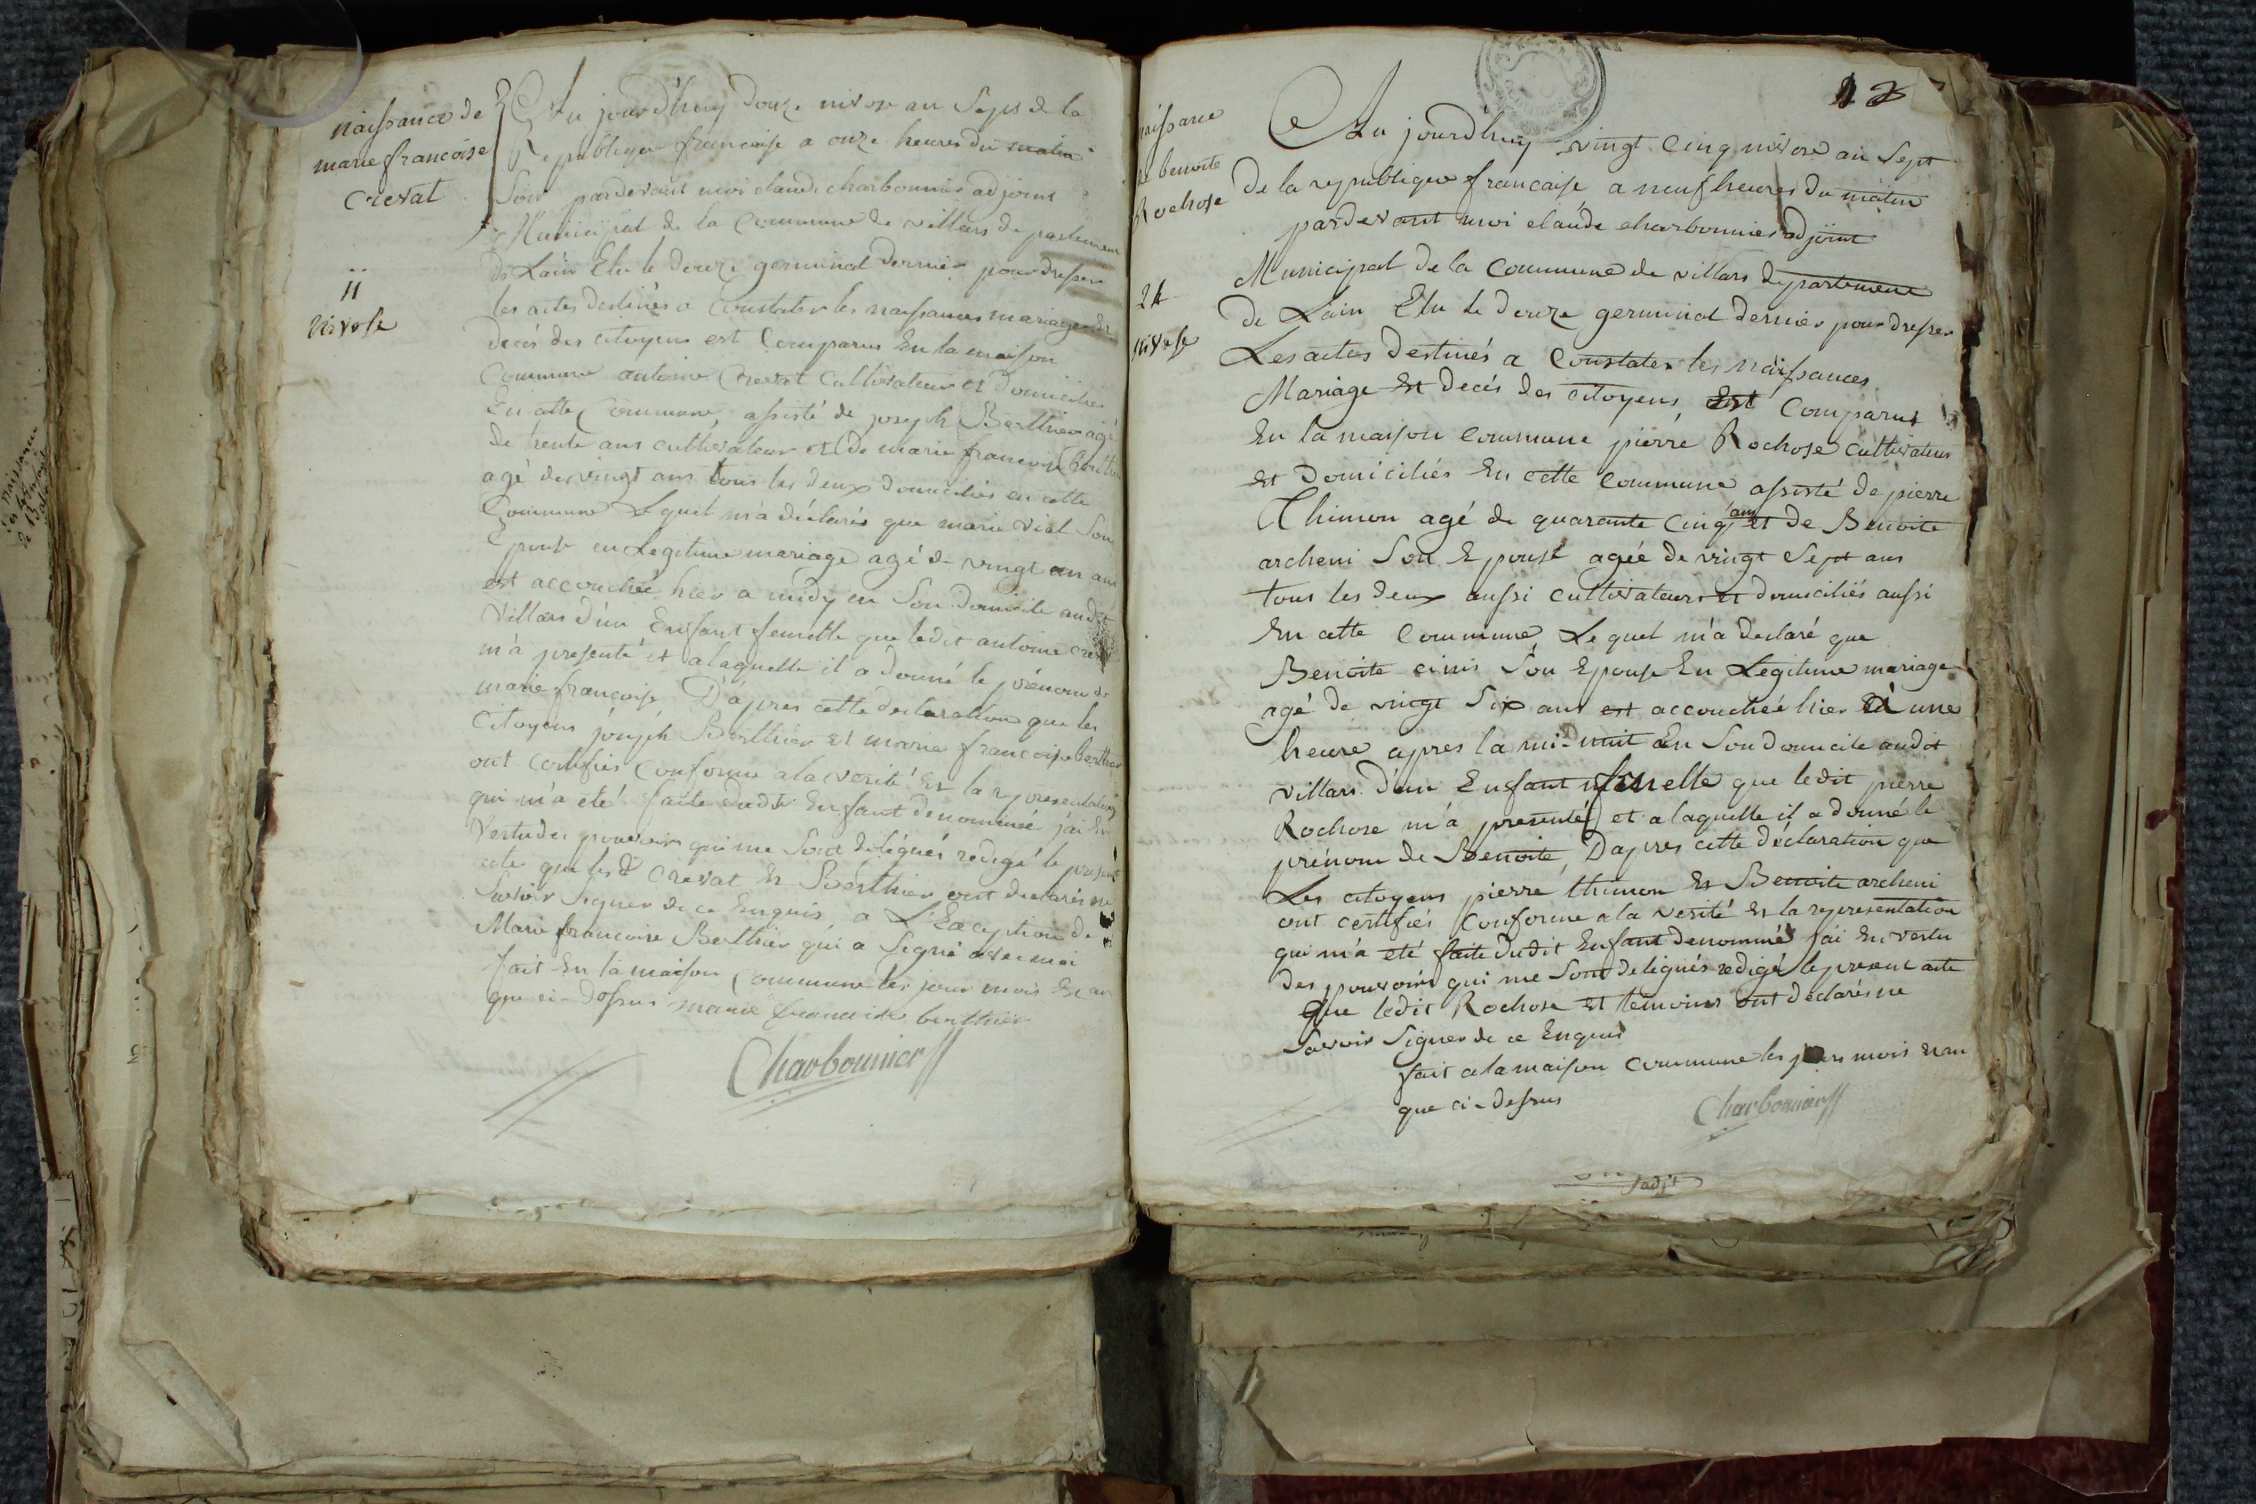 naissance de
marie francoise
Crevat
11
Nivose
Au jourd'huy douze nivose an Sept de la
Republique francaise a onze heures du matin
Soir pardevant moi claude charbonnier adjoint
Municipal de la Commune de villars departement
De Lain Elu le douze germinal dernier pour dresser
les actes destinés a Constater les naissances mariage et
decès des citoyens est Comparus En la maison
Commune antoine Crevat Cultivateur et domiciliés
En cette Commune, assisté de joseph Berthier agé
de trente ans cultivateur et de marie francoise Berthier
agé de vingt ans tous les deux domiciliés en cette
Commune Lequel m'a déclarés que marie Vial Son
Epouse en Legitime mariage agé de vingt un ans
est accouchée hier a midy en Son domicile audit
Villars d'un Enfant femelle que ledit antoine crevat
m'a presenté et alaquelle il a donné le prénom de
marie françoise, D'apres cette declaration que les
Citoyens joseph Berthier et marie francoise berthier
ont certifiés Conforme ala verité Et la representation
qui m'a été faite dudit Enfant denommé j'ai En
Vertu des pouvoirs qui me Sont délégués redigé le present
acte que les d. Crevat Et Berthier ont declarés ne
Savoir Signer de ce Enquis, a L'Exception de
Marie francoise Berthier qui a Signé avec moi
fait En la maison Commune les jour mois Et an
que ci-dessus marie francoise berthier
Charbonnier
13
naissance
de benoite
Rochose
24
nivose
Au jourd'huy vingt Cinq nivose an Sept
De la republique francaise a neuf heures du matin
pardevant moi claude charbonnier adjoint
Municipal de la Commune de villars departement
de Lain Elu le douze germinal dernier pour dresser
Les actes destinés a Constater les naissances
Mariage Et decés des citoyens, Est Comparus
En la maison Commune pierre Rochose cultivateur
Et Domiciliés En cette Commune assisté de pierre
Thimon agé de quarante Cinq ans et de Benoite
archeni Son Epouse agée de vingt Sept ans
tous les deux aussi cultivateurs et domiciliés aussi
En cette Commune Lequel m'a declaré que
Benoite Son Epouse En Legitime mariage
agé de vingt Six ans est accouchée hier à une
heure apres la mi-nuit En Son domicile audit
villars d'un Enfant femelle que ledit pierre
Rochose m'a presenté, et alaquelle il a donné le
prénom de Benoite, Dapres cette déclaration que
Les citoyens pierre thimon Et Benoite archeni
ont certifiés Conforme ala verité Et la representation
qui m'a eté faite dudit Enfant denommé j'ai En vertu
des pouvoirs qui me Sont delégués redigé le present acte
Que ledit Rochose et temoins ont declarés ne
Savoir Signer de ce Enquis
fait ala maison Commune les jours mois et an
que ci-dessus
Charbonnier